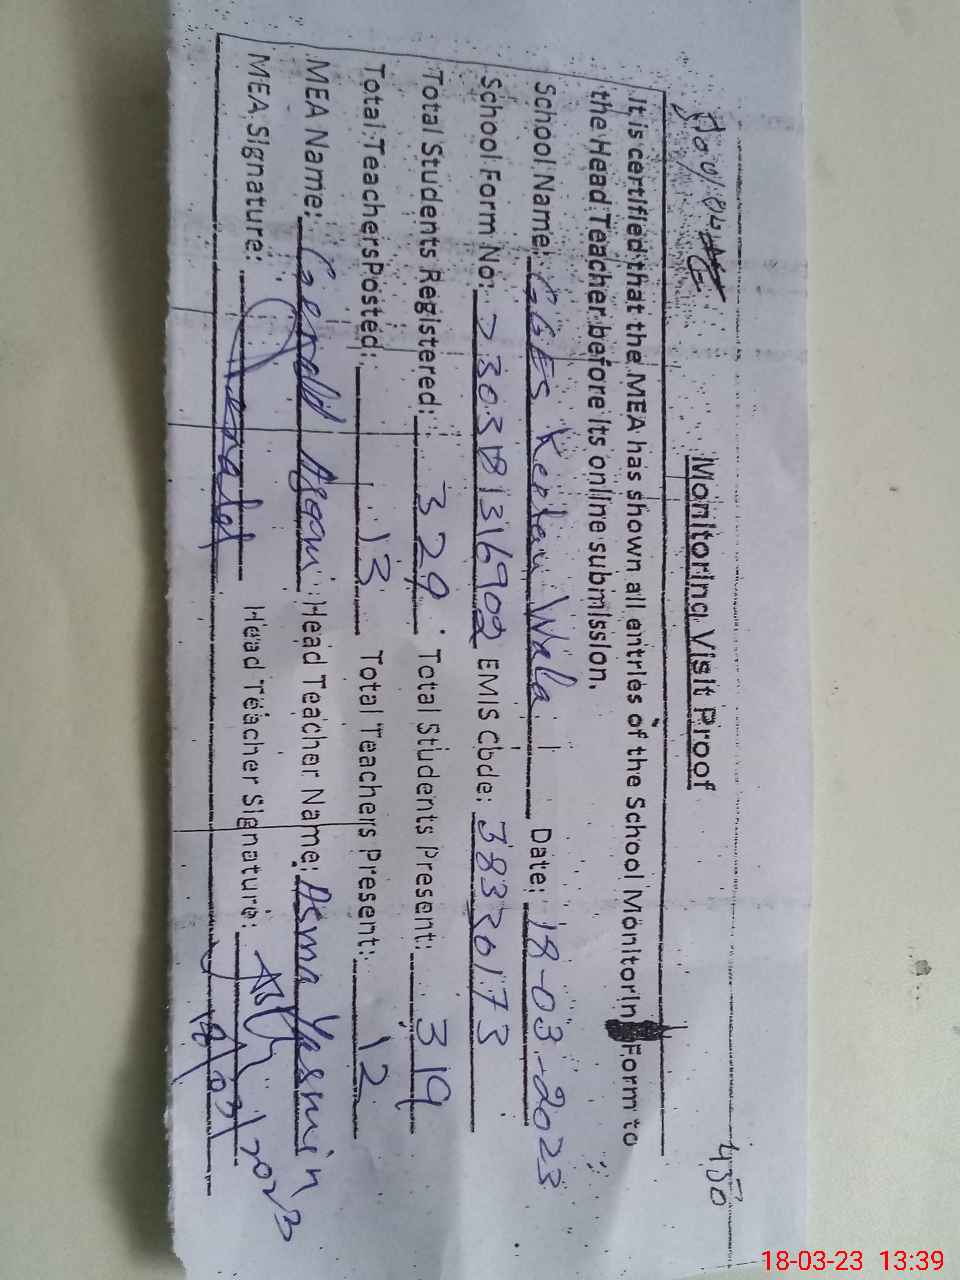 430
Monitoring Visit Proof
It is certified that the MEA has shown all entries of the School Monitorin Form to
the Head Teacher before its online submission.
School Name: GGES Wala Date: 18-03-2023
School Form No: EMIS Code: 38330173
Total Students Registered: 329 Total Students Present: 319
Total Teachers Posted: 13 Total Teachers Present: 12
MEA Name: Head Teacher Name: Asma Yasmin
MEA Signature: Head Teacher Signature:
18/03/2023
18-03-23 13:39